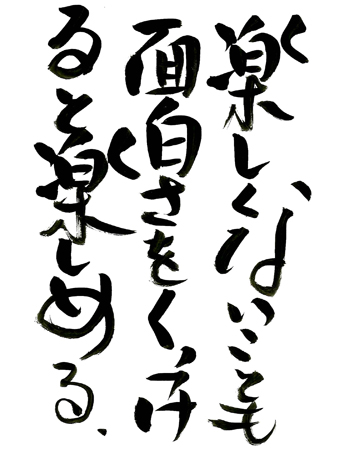 楽しくないことも
面白さをくっつけ
ると楽しめる、